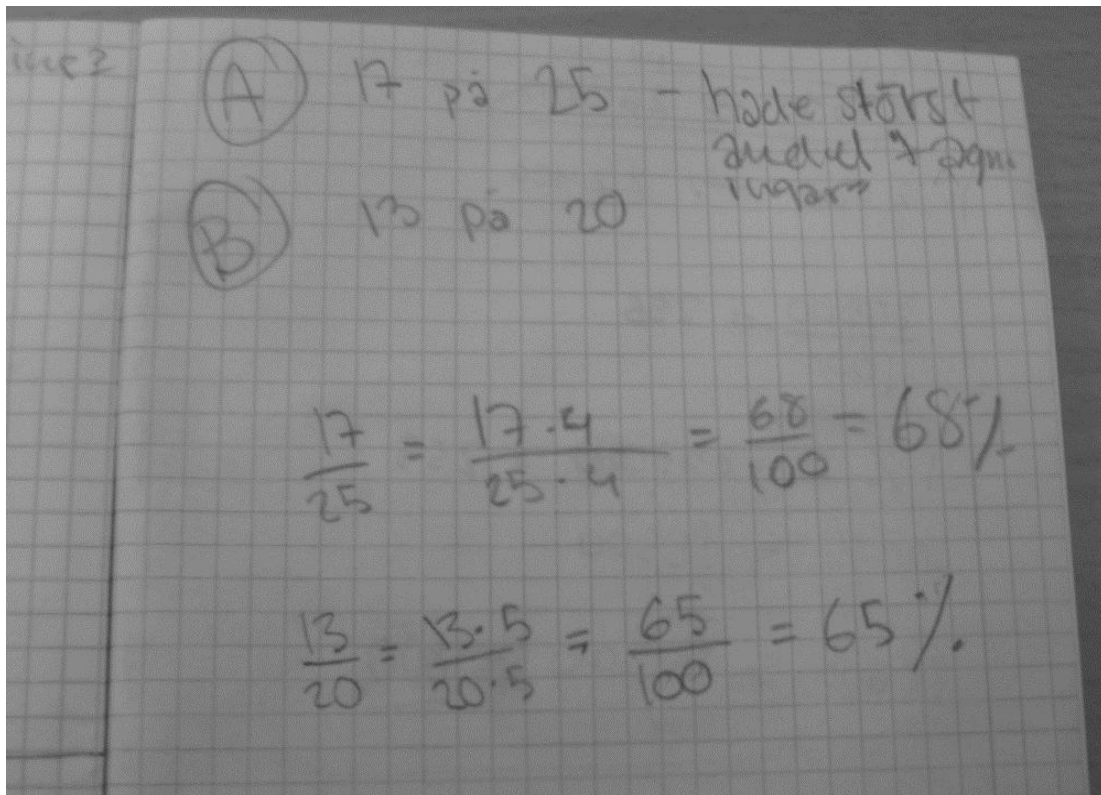 A 17 på 25 - hade störst
andel
B 13 på 20
17/25 = 17·4/25·4 = 68/100 = 68%
13/20 = 13·5/20·5 = 65/100 = 65%